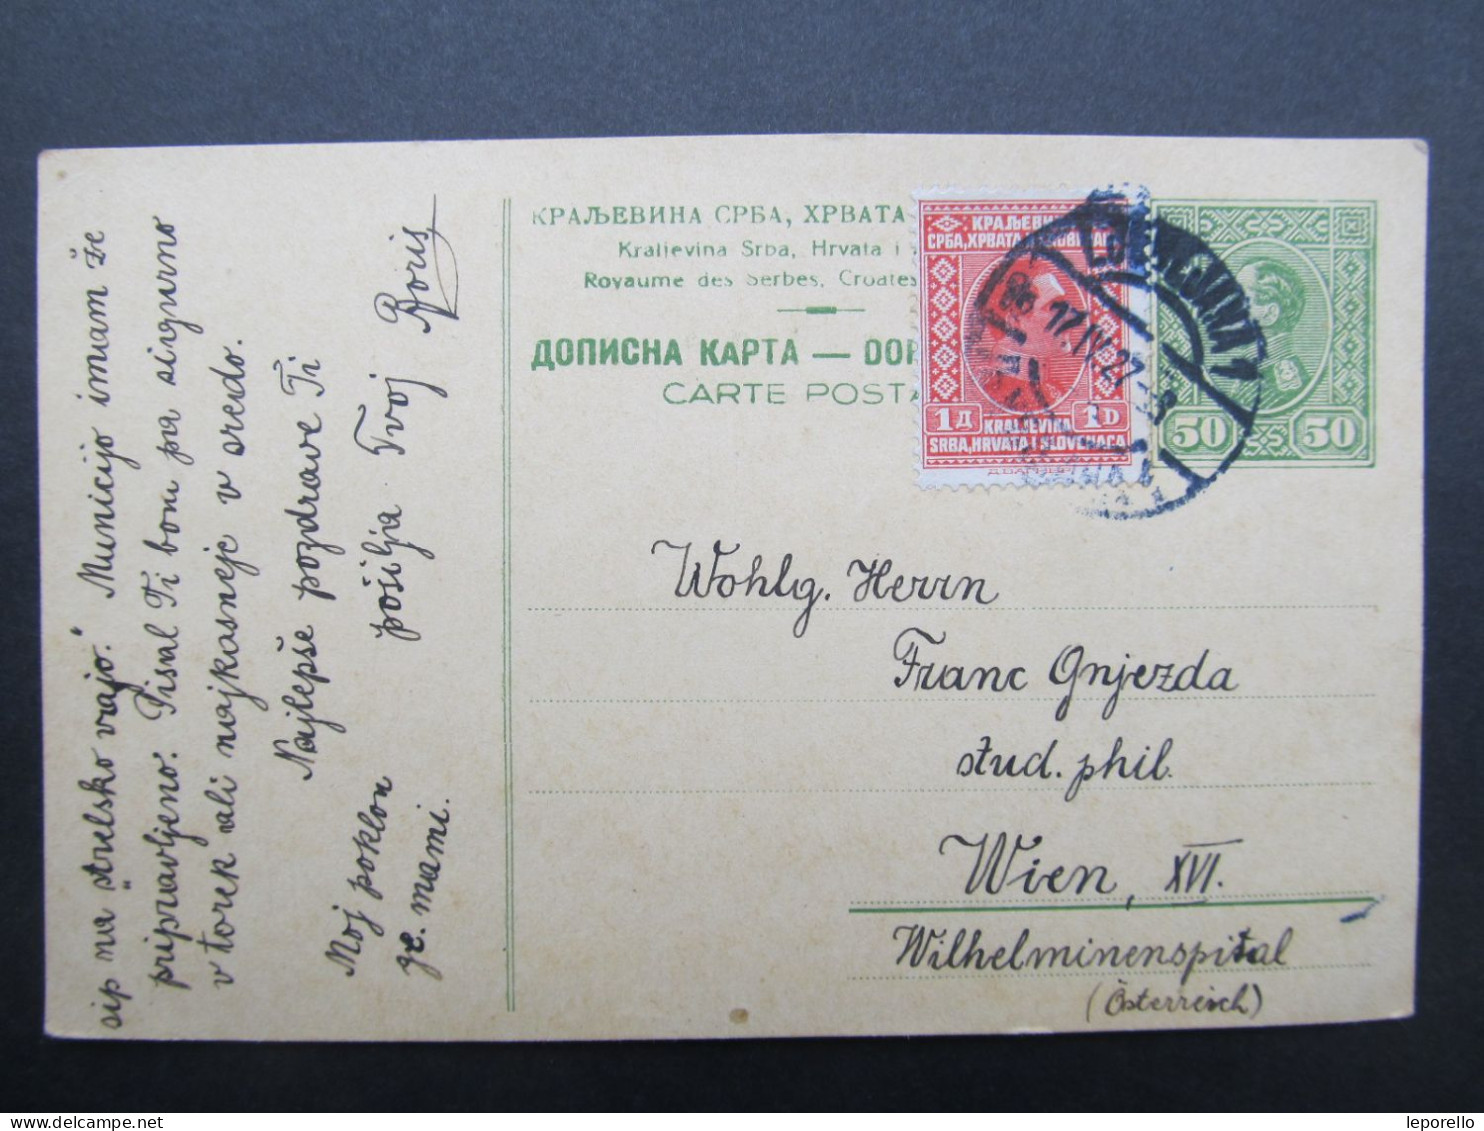 sip na "strelsko vrajo." Municijo imam že
pripravljeno. Pisal Ti bom pa sigurno
v torek ali najkasneje v sredo.
Najlepše pozdrave Ti
pošilja Tvoj Boris
Moj poklon
ge. mami.
КРАЉЕВИНА СРБА, ХРВАТА
Kraljevina Srba, Hrvata i
Royaume des Serbes, Croates
ДОПИСНА КАРТА — DOP
CARTE POSTA
КРАЉЕВИН
СРБА, ХРВАТА И
1Д 1D
KRALJEVINA
SRBA, HRVATA I SLOVENACA
LJUBLJANA 1
17.IV.27
50 50
Wohlg. Herrn
Franc Gnjezda
stud. phil.
Wien, XVI.
Wilhelminenspital
(Österreich)
leporello